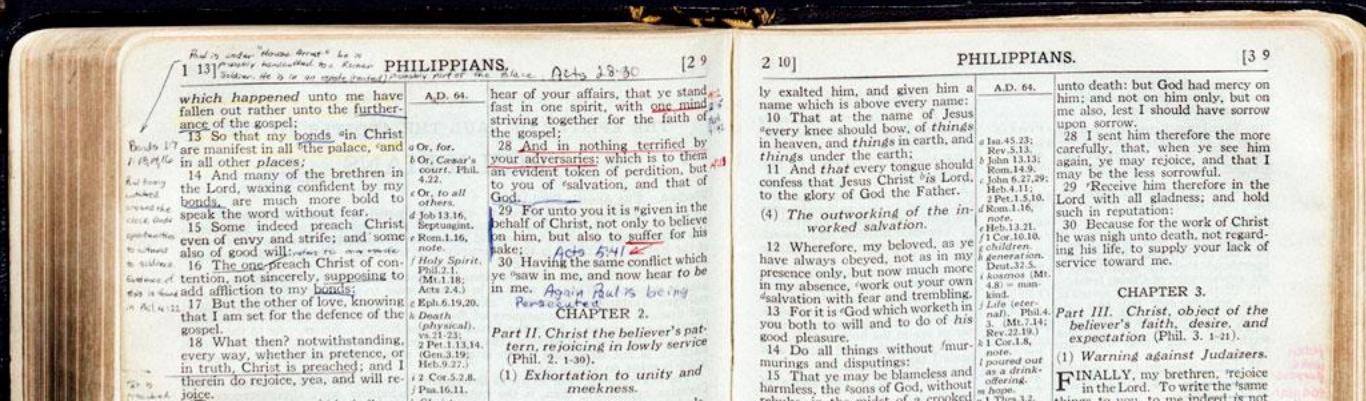 Paul is under "House Arrest" he is
probably handcuffed to a Roman
1 13] PHILIPPIANS. [2 9
Soldier. He is in an
Acts 28-30
which happened unto me have
fallen out rather unto the further-
ance of the gospel;
13 So that my bonds ain Christ
are manifest in all bthe palace, cand
in all other places;
14 And many of the brethren in
the Lord, waxing confident by my
bonds, are much more bold to
speak the word without fear.
15 Some indeed preach Christ
even of envy and strife; and some
also of good will:
16 The one preach Christ of con-
tention, not sincerely, supposing to
add affliction to my bonds:
17 But the other of love, knowing
that I am set for the defence of the
gospel.
18 What then? notwithstanding,
every way, whether in pretence, or
in truth, Christ is preached; and I
therein do rejoice, yea, and will re-
joice.
A.D. 64.
a Or, for.
b Or, Cæsar's
court. Phil.
4.22.
c Or, to all
others.
d Job 13.16,
Septuagint.
e Rom.1.16,
note.
f Holy Spirit.
Phil.2.1.
(Mt.1.18;
Acts 2.4.)
g Eph.6.19,20.
h Death
(physical).
vs.21-23;
2 Pet.1.13,14.
(Gen.3.19;
Heb.9.27.)
i 2 Cor.5.2,8.
j Psa.16.11.
hear of your affairs, that ye stand
fast in one spirit, with one mind
striving together for the faith of
the gospel;
28 And in nothing terrified by
your adversaries: which is to them
an evident token of perdition, but
to you of salvation, and that of
God.
29 For unto you it is given in the
behalf of Christ, not only to believe
on him, but also to suffer for his
sake;
Acts 5:41
30 Having the same conflict which
ye saw in me, and now hear to be
in me.
Again Paul is being
Persecuted
CHAPTER 2.
Part II. Christ the believer's pat-
tern, rejoicing in lowly service
(Phil. 2. 1-30).
(1) Exhortation to unity and
meekness.
2 10] PHILIPPIANS. [3 9
ly exalted him, and given him a
name which is above every name:
10 That at the name of Jesus
aevery knee should bow, of things
in heaven, and things in earth, and
things under the earth;
11 And that every tongue should
confess that Jesus Christ bis Lord,
to the glory of God the Father.
(4) The outworking of the in-
worked salvation.
12 Wherefore, my beloved, as ye
have always obeyed, not as in my
presence only, but now much more
in my absence, cwork out your own
dsalvation with fear and trembling.
13 For it is eGod which worketh in
you both to will and to do of his
good pleasure.
14 Do all things without fmur-
murings and disputings:
15 That ye may be blameless and
harmless, the gsons of God, without
rebuke, in the midst of a crooked
A.D. 64.
a Isa.45.23;
Rev.5.13.
b John 13.13;
Rom.14.9.
c John 6.27,29;
Heb.4.11;
2 Pet.1.5,10.
d Rom.1.16,
note.
e Heb.13.21.
f 1 Cor.10.10.
g children.
h generation.
Deut.32.5.
i kosmos (Mt.
4.8) = man-
kind.
j Life (eter-
nal). Phil.4.
3. (Mt.7.14;
Rev.22.19.)
k 1 Cor.1.8,
note.
l poured out
as a drink-
offering.
m hope.
unto death: but God had mercy on
him; and not on him only, but on
me also, lest I should have sorrow
upon sorrow.
28 I sent him therefore the more
carefully, that, when ye see him
again, ye may rejoice, and that I
may be the less sorrowful.
29 Receive him therefore in the
Lord with all gladness; and hold
such in reputation:
30 Because for the work of Christ
he was nigh unto death, not regard-
ing his life, to supply your lack of
service toward me.
CHAPTER 3.
Part III. Christ, object of the
believer's faith, desire, and
expectation (Phil. 3. 1-21).
(1) Warning against Judaizers.
FINALLY, my brethren, rejoice
in the Lord. To write the same
things to you, to me indeed is not